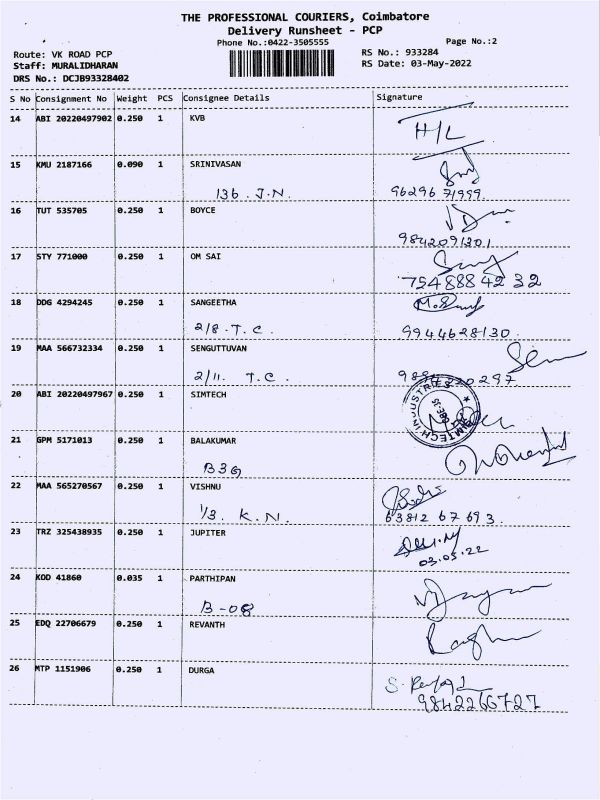 THE PROFESSIONAL COURIERS, Coimbatore
Delivery Runsheet - PCP
Phone No.:0422-3505555
Page No.:2
Route: VK ROAD PCP
RS No.: 933284
Staff: MURALIDHARAN
RS Date: 03-May-2022
DRS No.: DCJB93328402
S No Consignment No Weight PCS Consignee Details Signature
14 ABI 20220497902 0.250 1 KVB
H/L
15 KMU 2187166 0.090 1 SRINIVASAN
136. J.N. 96296 71999.
16 TUT 535705 0.250 1 BOYCE
9842091301
17 STY 771000 0.250 1 OM SAI
754888 42 32
18 DDG 4294245 0.250 1 SANGEETHA
2/8. T.C. 9944628130.
19 MAA 566732334 0.250 1 SENGUTTUVAN
2/11. T.C.
20 ABI 20220497967 0.250 1 SIMTECH
SIMTECH INDUSTRIES
21 GPM 5171013 0.250 1 BALAKUMAR
B3G
22 MAA 565270567 0.250 1 VISHNU
1/3. K.N. 63812 67 693.
23 TRZ 325438935 0.250 1 JUPITER
03.05.22
24 KOD 41860 0.035 1 PARTHIPAN
B-08
25 EDQ 22706679 0.250 1 REVANTH
26 MTP 1151906 0.250 1 DURGA
9842266727